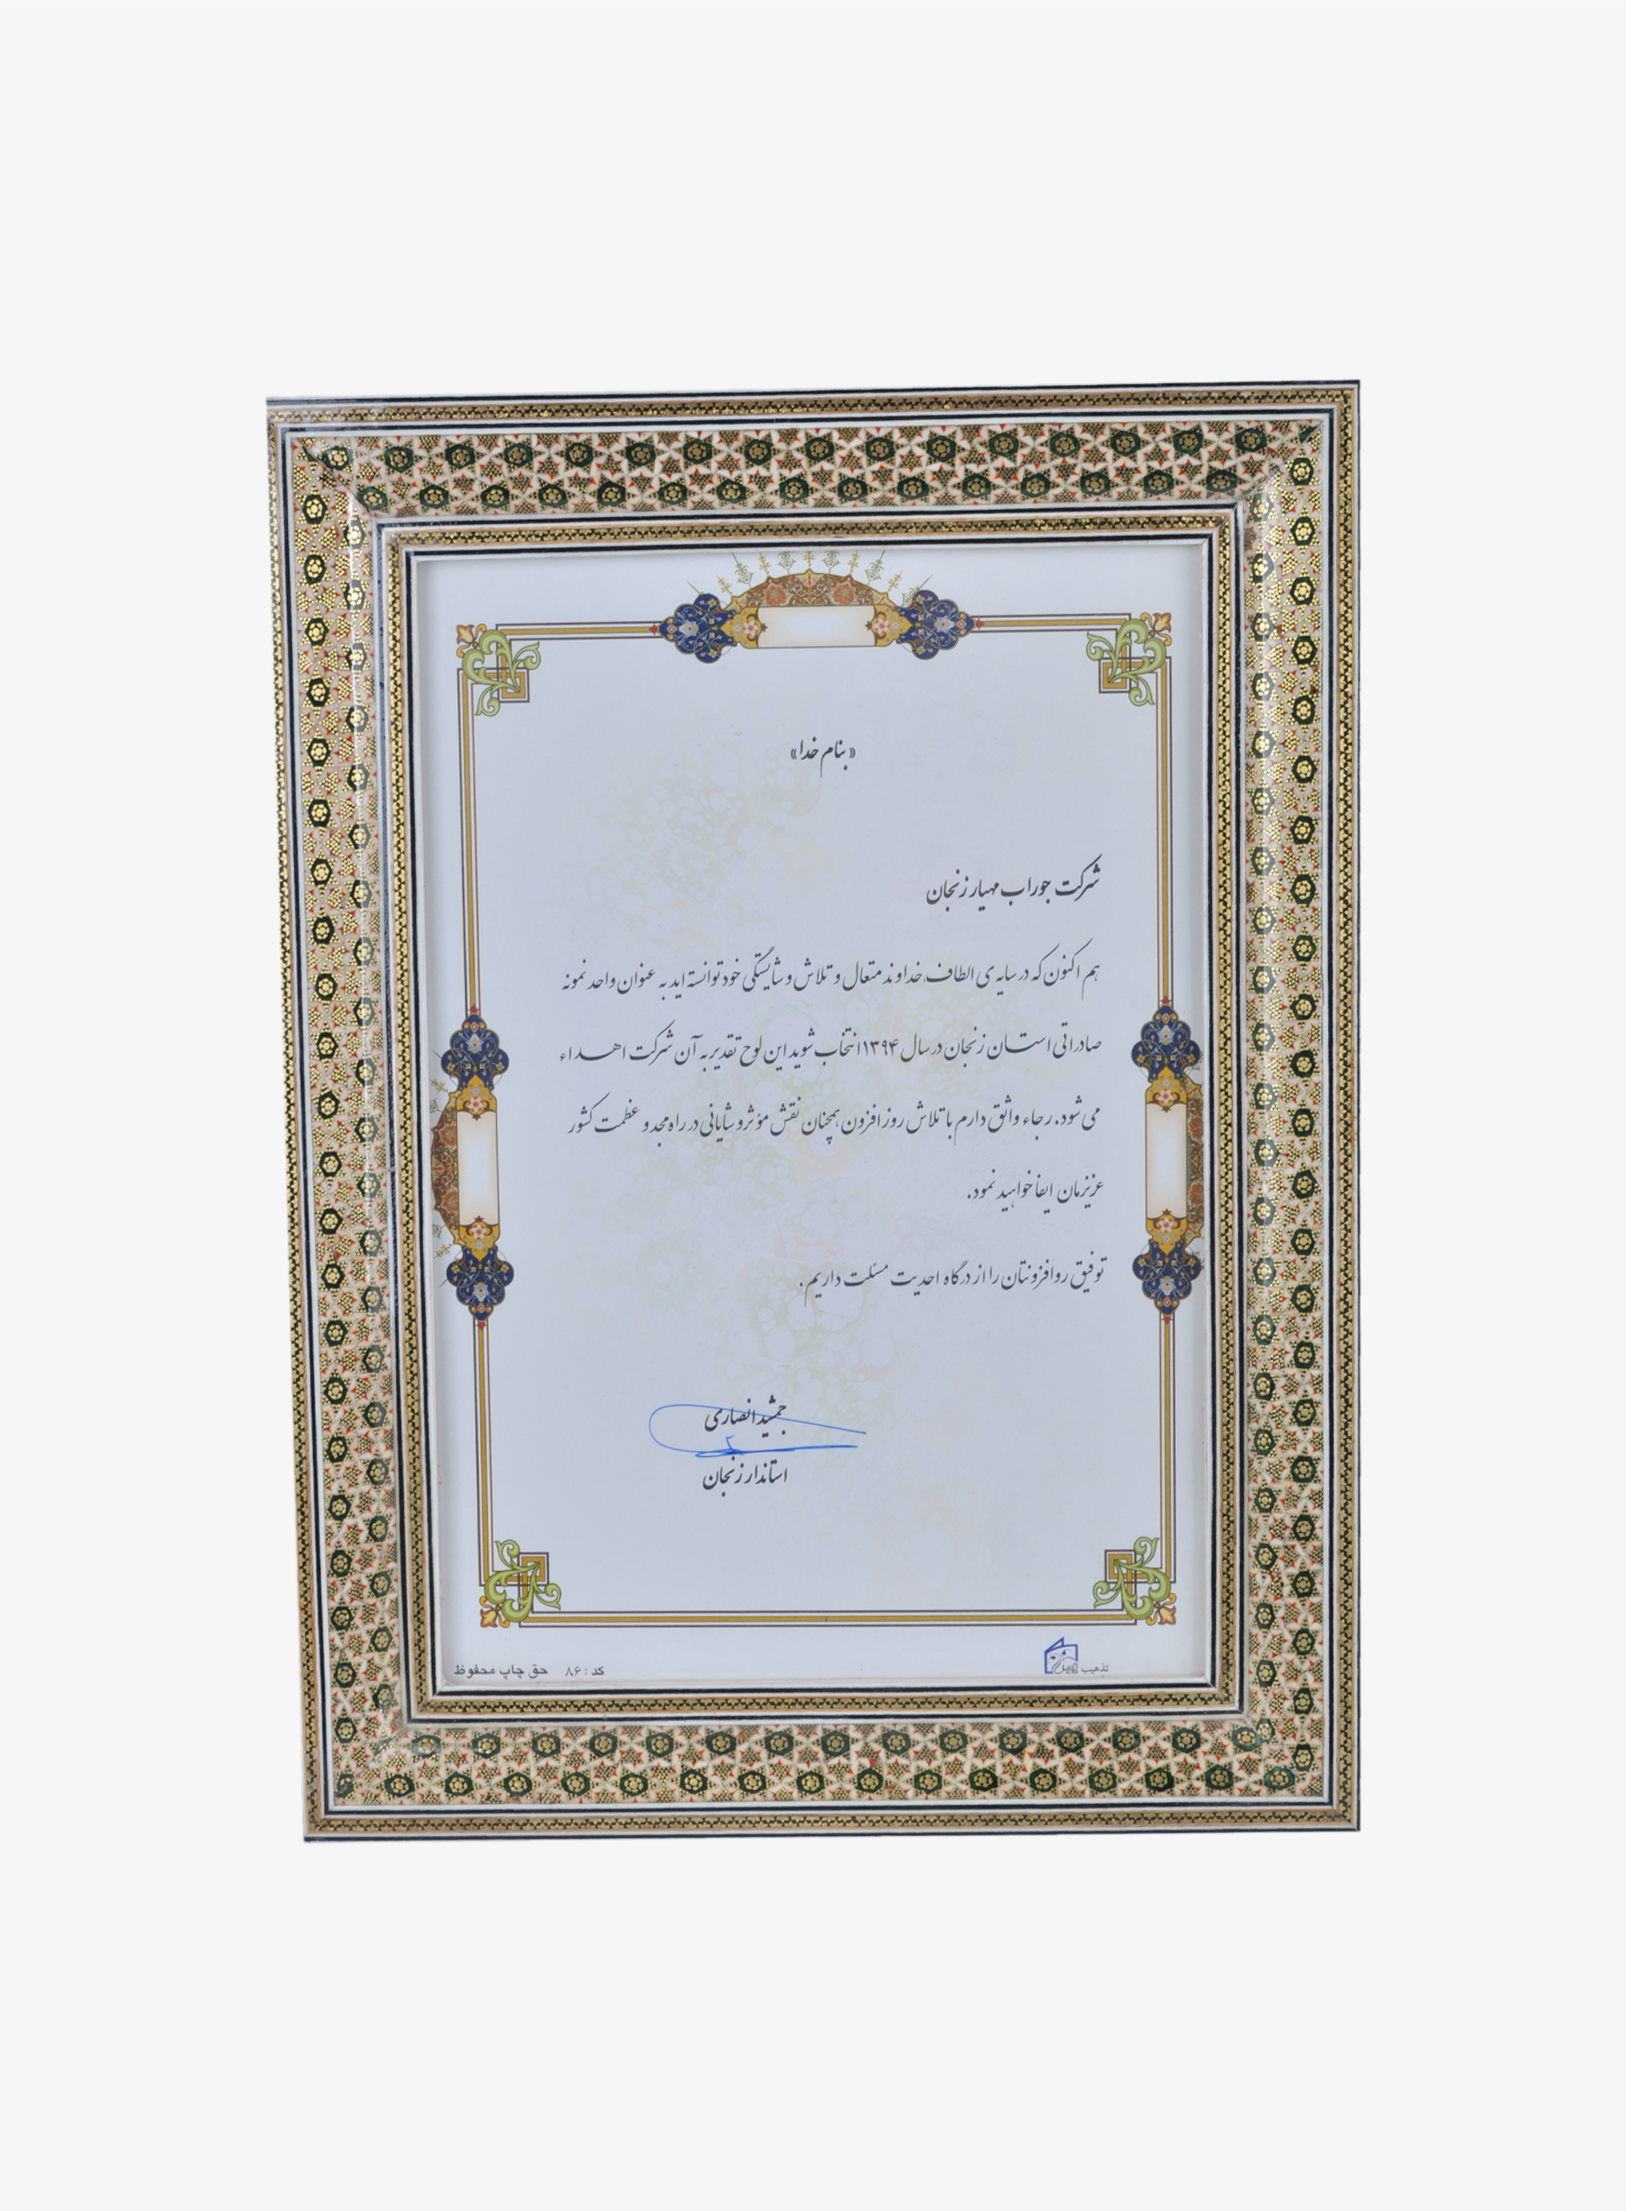 «بنام خدا»
شرکت جوراب مهیار زنجان
هم اکنون که در سایه ی الطاف خداوند متعال و تلاش و شایستگی خود توانسته اید به عنوان واحد نمونه
صادراتی استان زنجان در سال ۱۳۹۴ انتخاب شوید این لوح تقدیر به آن شرکت اهداء
می شود. رجاء واثق دارم با تلاش روز افزون همچنان نقش مؤثر و شایانی در راه مجد و عظمت کشور
عزیزمان ایفا خواهید نمود.
توفیق روافزونتان را از درگاه احدیت مسئلت داریم.
جمشید انصاری
استاندار زنجان
تذهیب
کد : ۸۶ حق چاپ محفوظ